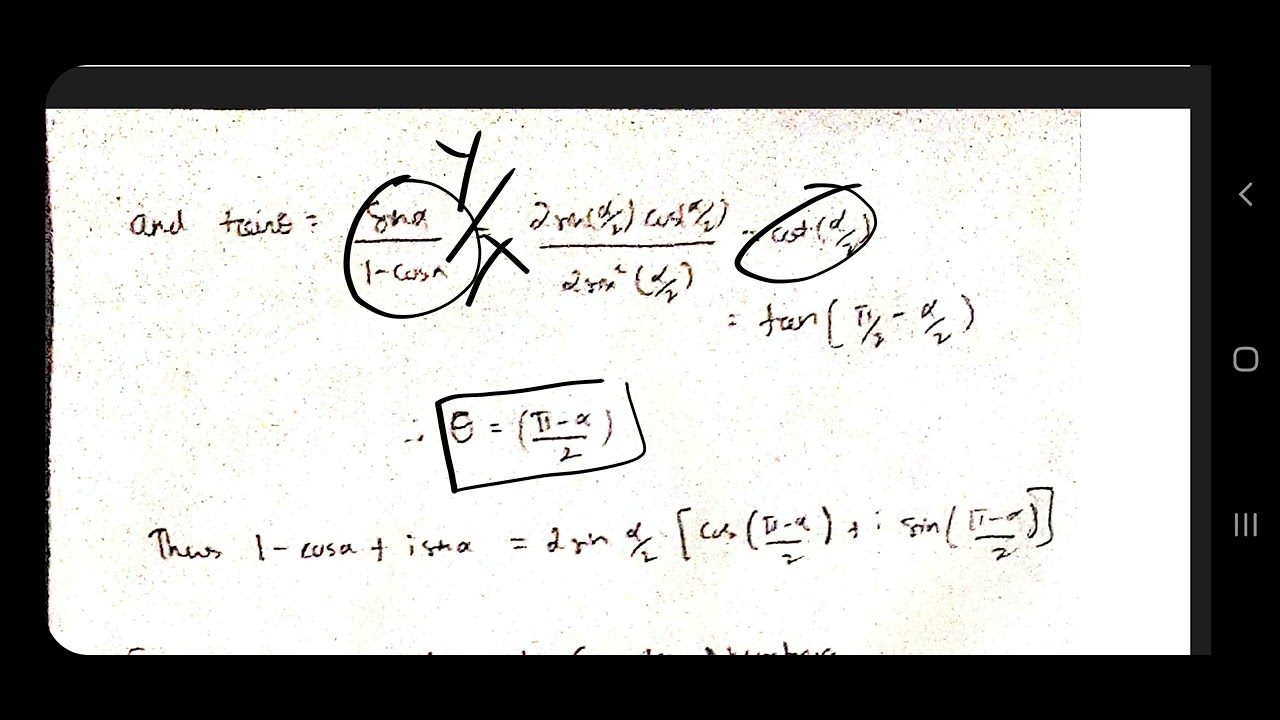 and tanθ = sinα/1-cosα = 2sin(α/2) cos(α/2)/2sin²(α/2) = cot(α/2)
y/x
= tan(π/2 - α/2)
∴ θ = (π-α/2)
Thus 1-cosα + isinα = 2sin α/2 [cos(π-α/2) + i sin(π-α/2)]